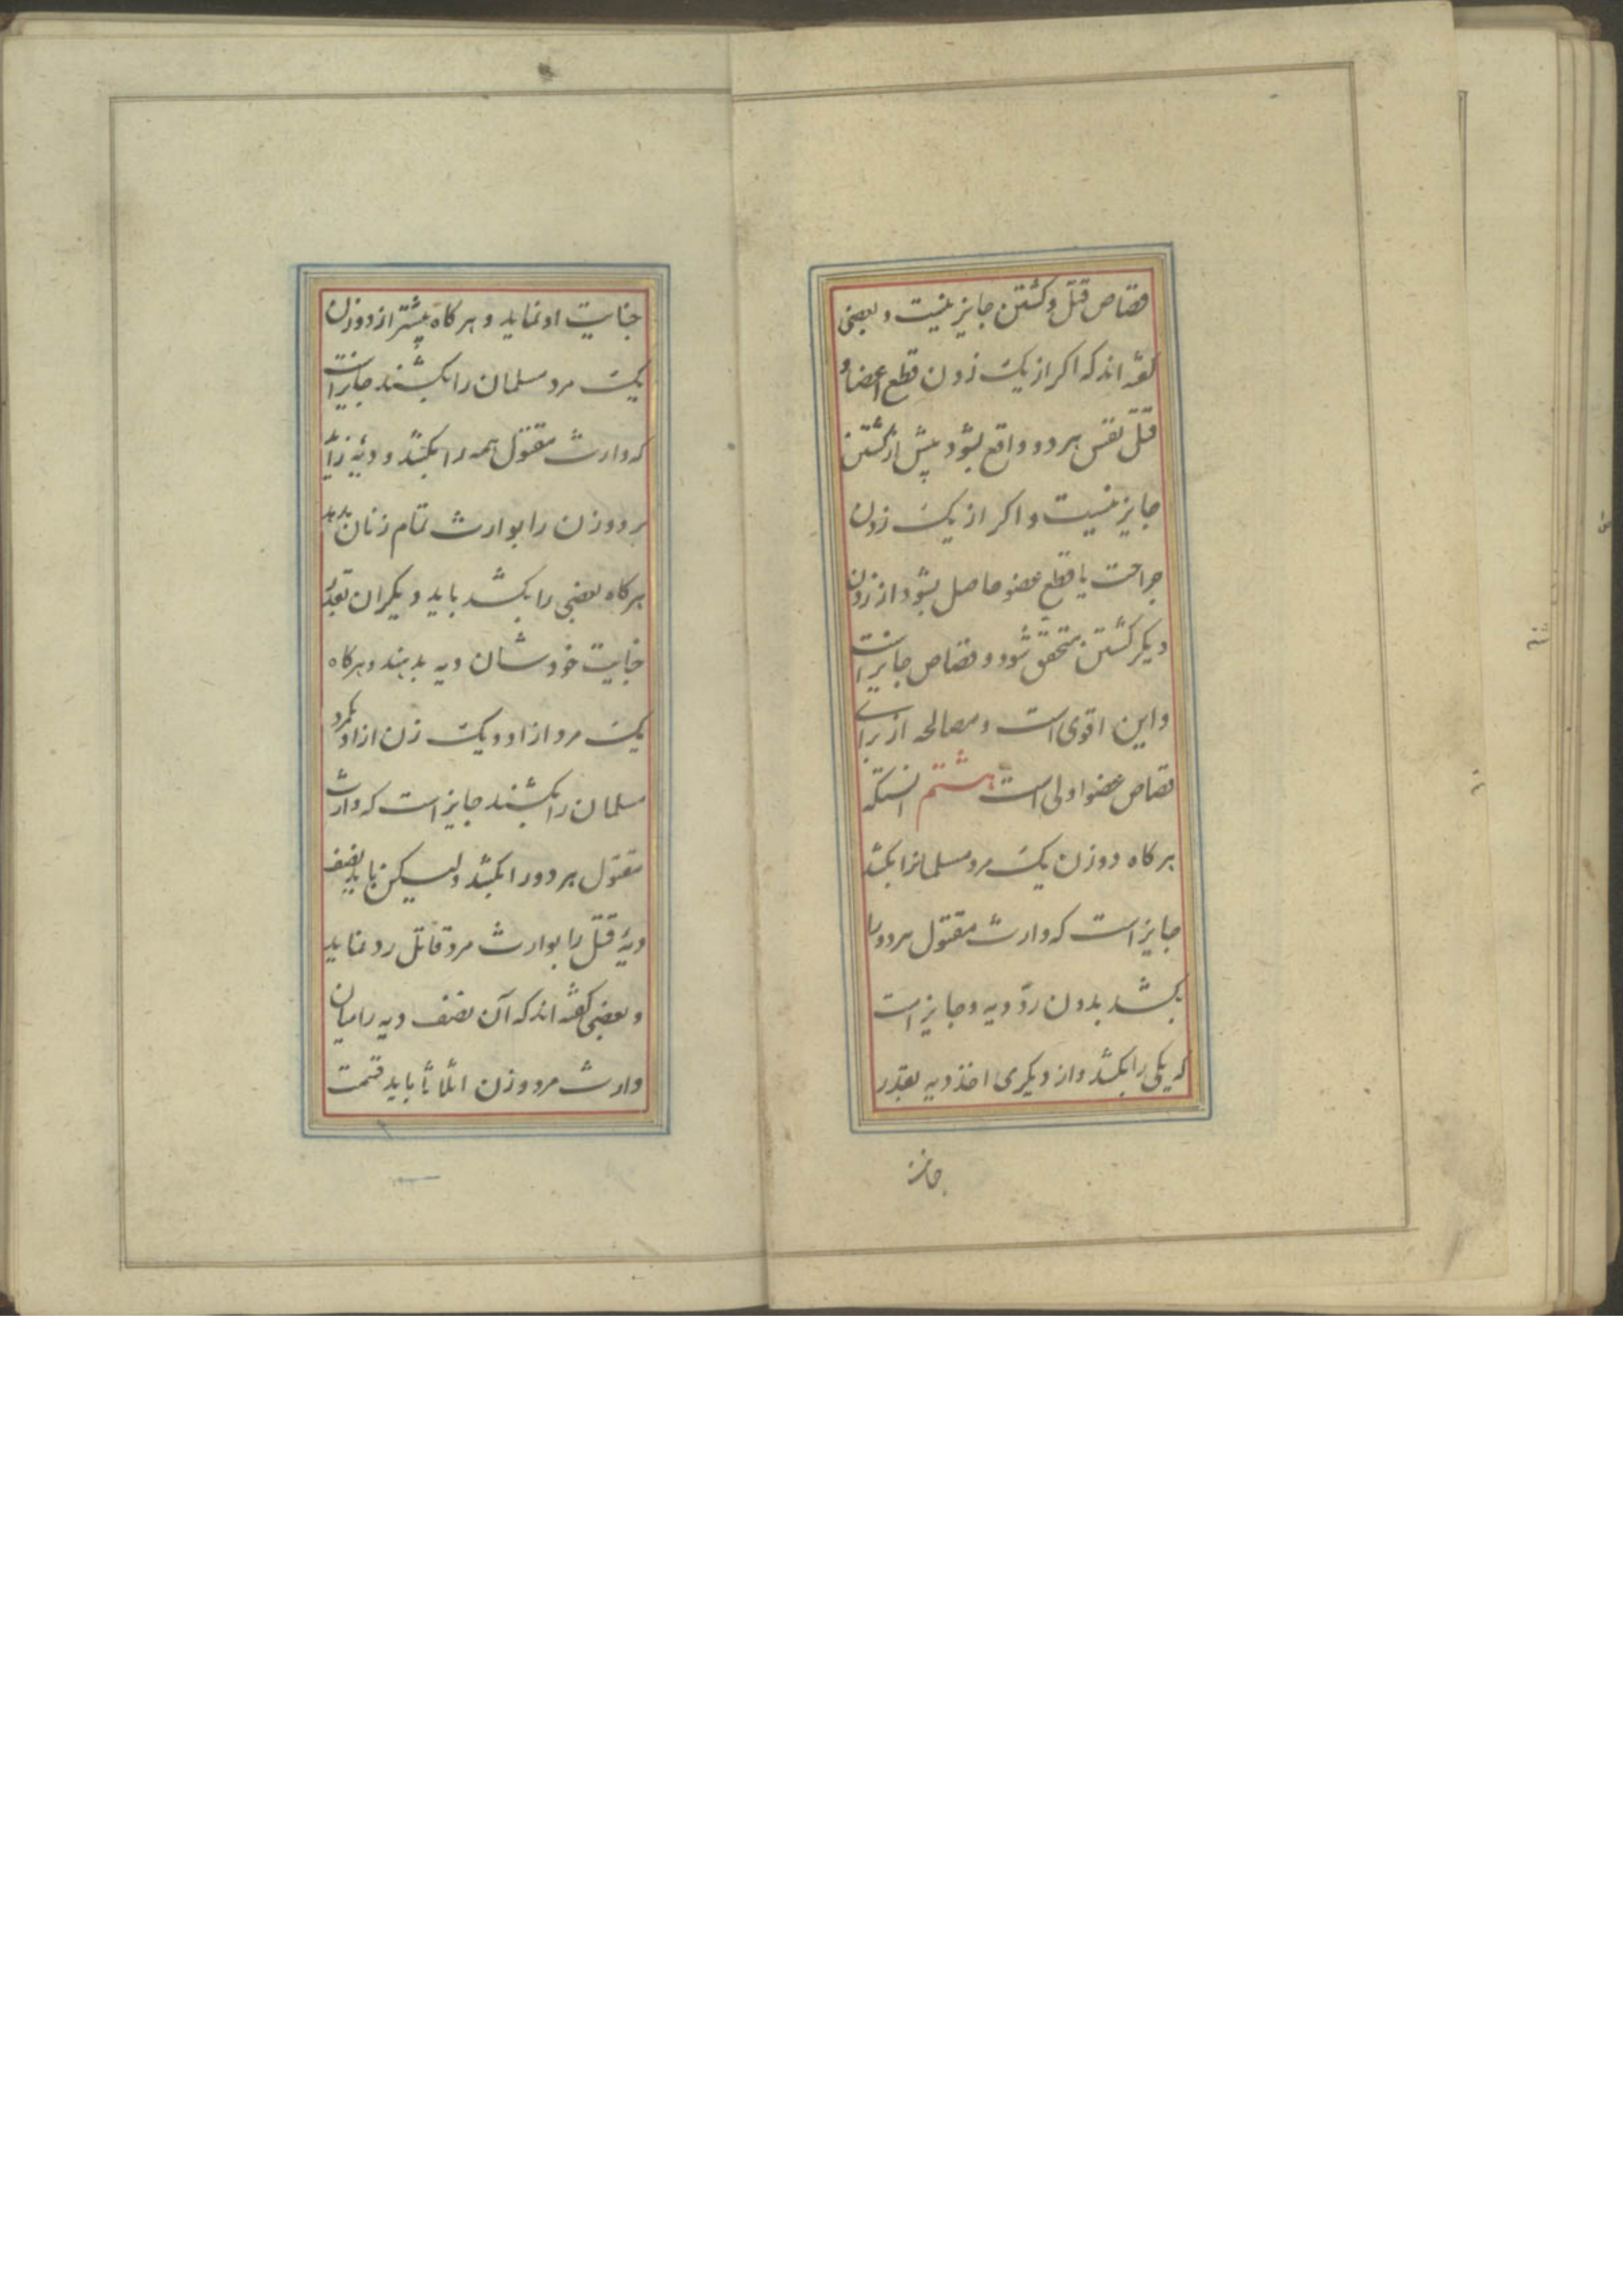 قصاص قتل و کشتن جایز نیست و بعضی
کفته اند که اکر از یک زدن قطع اعضا و
قتل نفس هر دو واقع بشود پیش از کشتن
جایز نیست و اکر از یک زدن
جراحت یا قطع عضو حاصل بشود از زدن
دیکر کشتن متحقق شود قصاص جایز است
و این اقوی است و مصالحه از برای
قصاص عضو اولی است هشتم انستکه
هر کاه دو زن یک مرد مسلمانرا بکشد
جایز است که وارث مقتول هر دو را
بکشد بدون ردّ دیه و جایز است
که یکی را بکشد و از دیکری اخذ دیه بقدر
جنایت
جنایت او نماید و هر کاه پیشتر از دو زن
یک مرد مسلمان را بکشند جایز است
که وارث مقتول همه را بکشد و دیهٔ زیاد
بر دو زن را بوارث تمام زنان بدهد
هر کاه بعضی را بکشد باید دیکران بقدر
جنایت خودشان دیه بدهند و هر کاه
یک مرد ازاد و یک زن ازاد یکمرد
مسلمان را بکشند جایز است که وارث
مقتول هر دو را بکشد ولیکن باید نصف
دیهٔ قتل را بوارث مرد قاتل رد نماید
و بعضی کفته اند که آن نصف دیه را میان
وارث مرد و زن اثلاثاً باید قسمت